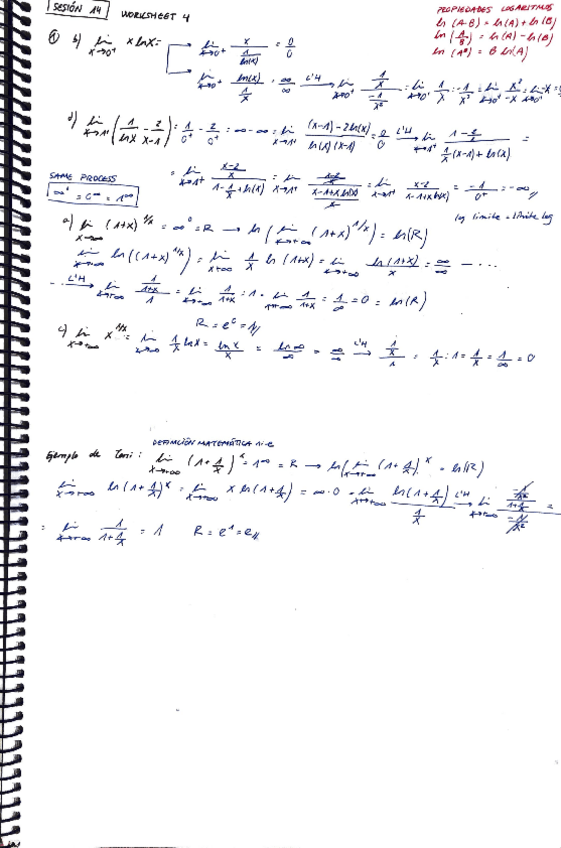 SESIÓN 14
WORKSHEET 4
PROPIEDADES LOGARITMOS
ln (A·B) = ln(A) + ln(B)
ln (A/B) = ln(A) - ln(B)
ln (A^B) = B ln(A)
① b) lim x→0+ x lnX = → lim x→0+ x / (1/ln(x)) = 0/0
→ lim x→0+ ln(x) / (1/x) = ∞/∞ L'H → lim x→0+ (1/x) / (-1/x²) = lim x→0+ 1/x : -1/x² = lim x→0+ x²/-x = lim x→0+ -x =
d) lim x→1+ (1/lnx - 2/(x-1)) = 1/0+ - 2/0+ = ∞-∞ = lim x→1+ ((x-1) - 2ln(x)) / (ln(x)(x-1)) = 0/0 L'H → lim x→1+ (1 - 2/x) / (1/x (x-1) + ln(x)) =
= lim x→1+ ((x-2)/x) / (1 - 1/x + ln(x)) = lim x→1+ ((x-2)/x) / ((x-1+x ln(x))/x) = lim x→1+ (x-2) / (x-1+x ln(x)) = -1/0+ = -∞
SAME PROCESS
∞⁰ = 0^∞ = 1^∞
log limite = limite log
a) lim x→∞ (1+x)^(1/x) = ∞⁰ = R → ln (lim x→+∞ (1+x)^(1/x)) = ln(R)
lim x→+∞ ln((1+x)^(1/x)) = lim x→+∞ 1/x ln (1+x) = lim x→+∞ ln(1+x)/x = ∞/∞ → ...
... L'H → lim x→+∞ (1/(1+x))/1 = lim x→+∞ 1/(1+x) : 1 = lim x→+∞ 1/(1+x) = 1/∞ = 0 = ln(R)
R = e⁰ = 1
c) lim x→+∞ x^(1/x) = lim x→+∞ 1/x lnx = lnx/x = ln∞/∞ = ∞/∞ L'H → (1/x)/1 = 1/x : 1 = 1/x = 1/∞ = 0
DEFINICIÓN MATEMÁTICA
Ejemplo de Toni: lim x→+∞ (1 + 1/x)^x = 1^∞ = R → ln(lim x→+∞ (1+1/x)^x = ln(R)
lim x→+∞ ln(1+1/x)^x = lim x→+∞ x ln(1+1/x) = ∞·0 = lim x→+∞ ln(1+1/x) / (1/x) L'H → lim x→+∞ ((-1/x²)/(1+1/x)) / (-1/x²) =
= lim x→+∞ 1/(1+1/x) = 1 R = e¹ = e